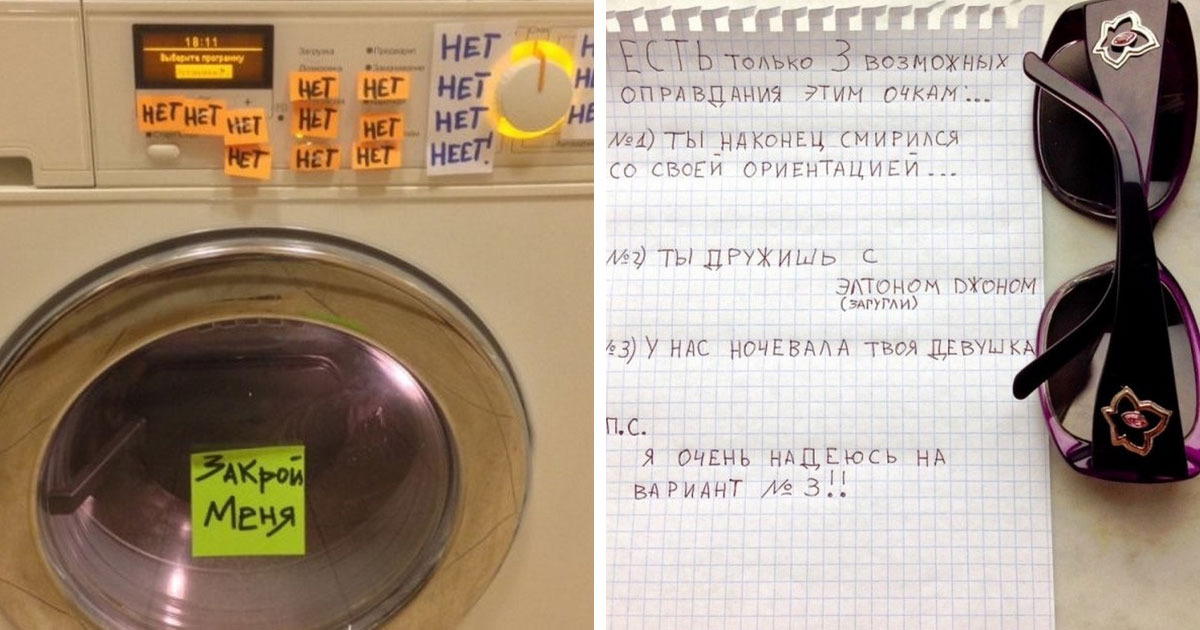 18:11
Выберите программу
Загрузка
НЕТ
НЕТ
НЕТ
НЕТ
НЕТ
НЕТ
НЕТ
НЕТ
НЕТ
НЕТ
НЕТ
НЕТ
НЕТ
НЕЕТ!
ЗАКРОЙ
МЕНЯ
ЕСТЬ ТОЛЬКО 3 ВОЗМОЖНЫХ
ОПРАВДАНИЯ ЭТИМ ОЧКАМ:...
№1) ТЫ НАКОНЕЦ СМИРИЛСЯ
СО СВОЕЙ ОРИЕНТАЦИЕЙ...
№2) ТЫ ДРУЖИШЬ С
ЭЛТОНОМ ДЖОНОМ
(ЗАГУГЛИ)
№3) У НАС НОЧЕВАЛА ТВОЯ ДЕВУШКА
П.С.
Я ОЧЕНЬ НАДЕЮСЬ НА
ВАРИАНТ № 3!!